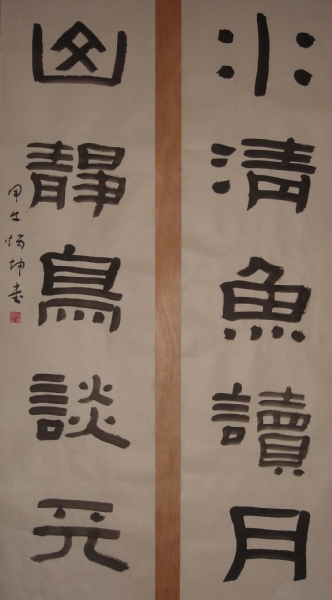 水清魚讀月
山靜鳥談天
甲午 坤書